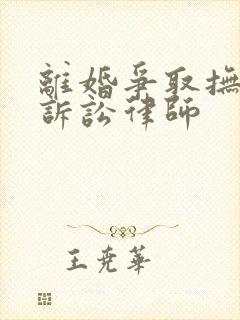 離婚爭取撫
訴訟律師
王堯華